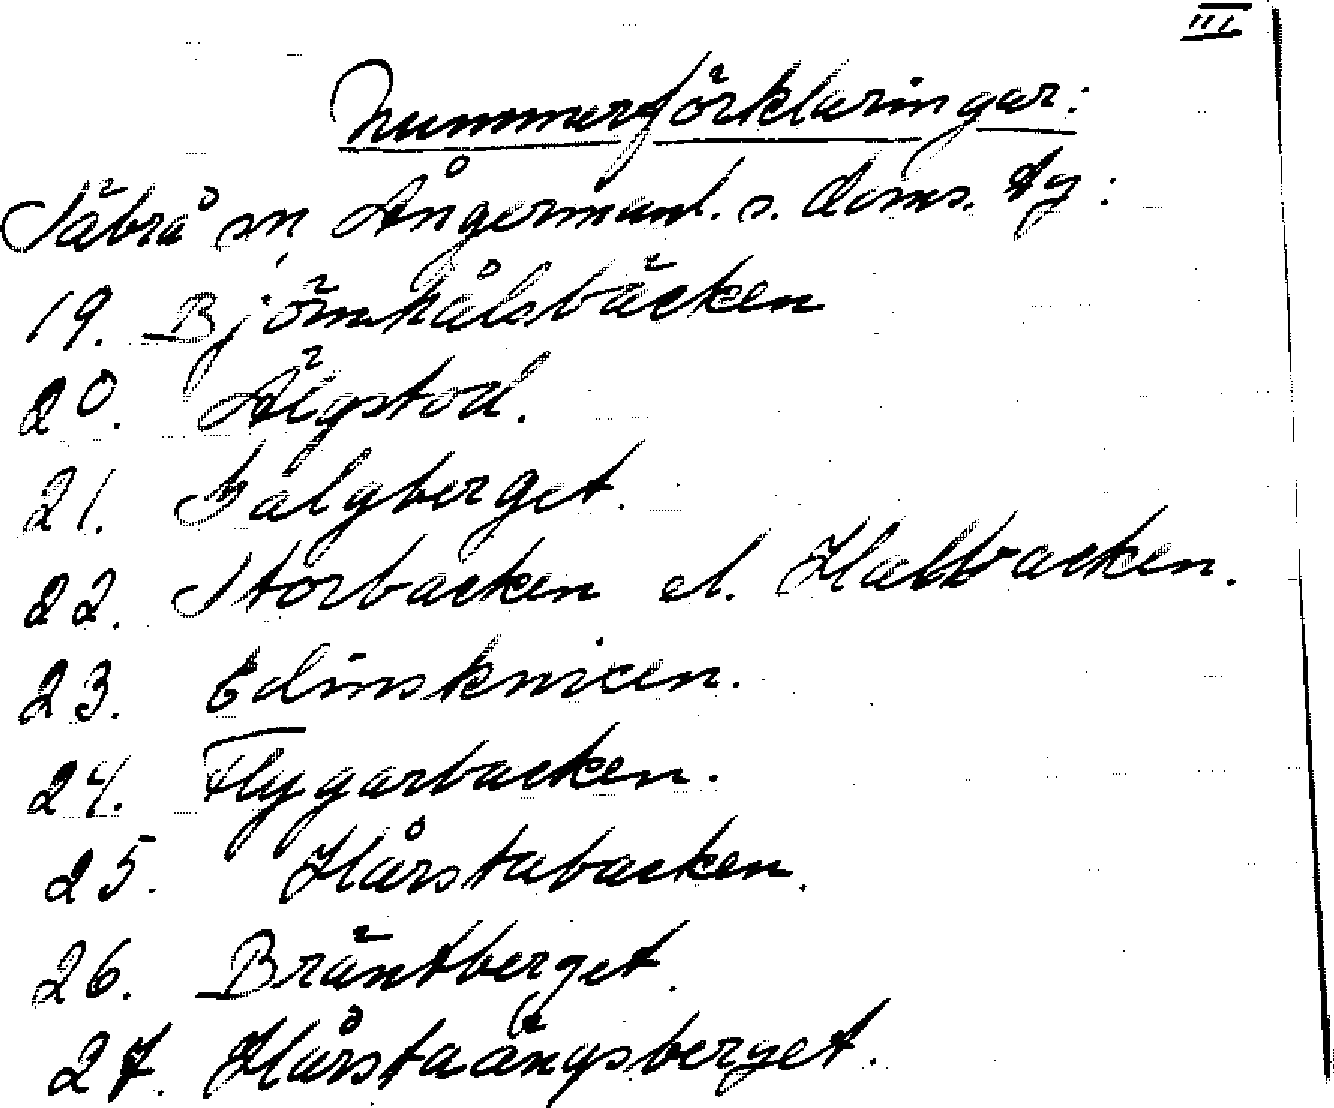 III
Nummerförklaringar:
Säbrå sn, Ångermanl. s. doms. tg:
19. Björnhålsbäcken
20. Älgstod.
21. Galgberget.
22. Storbacken el. Hallbacken.
23. Edinsknicen.
24. Flygarbacken.
25. Hårstabacken.
26. Bräntberget.
27. Hårstaängsberget.